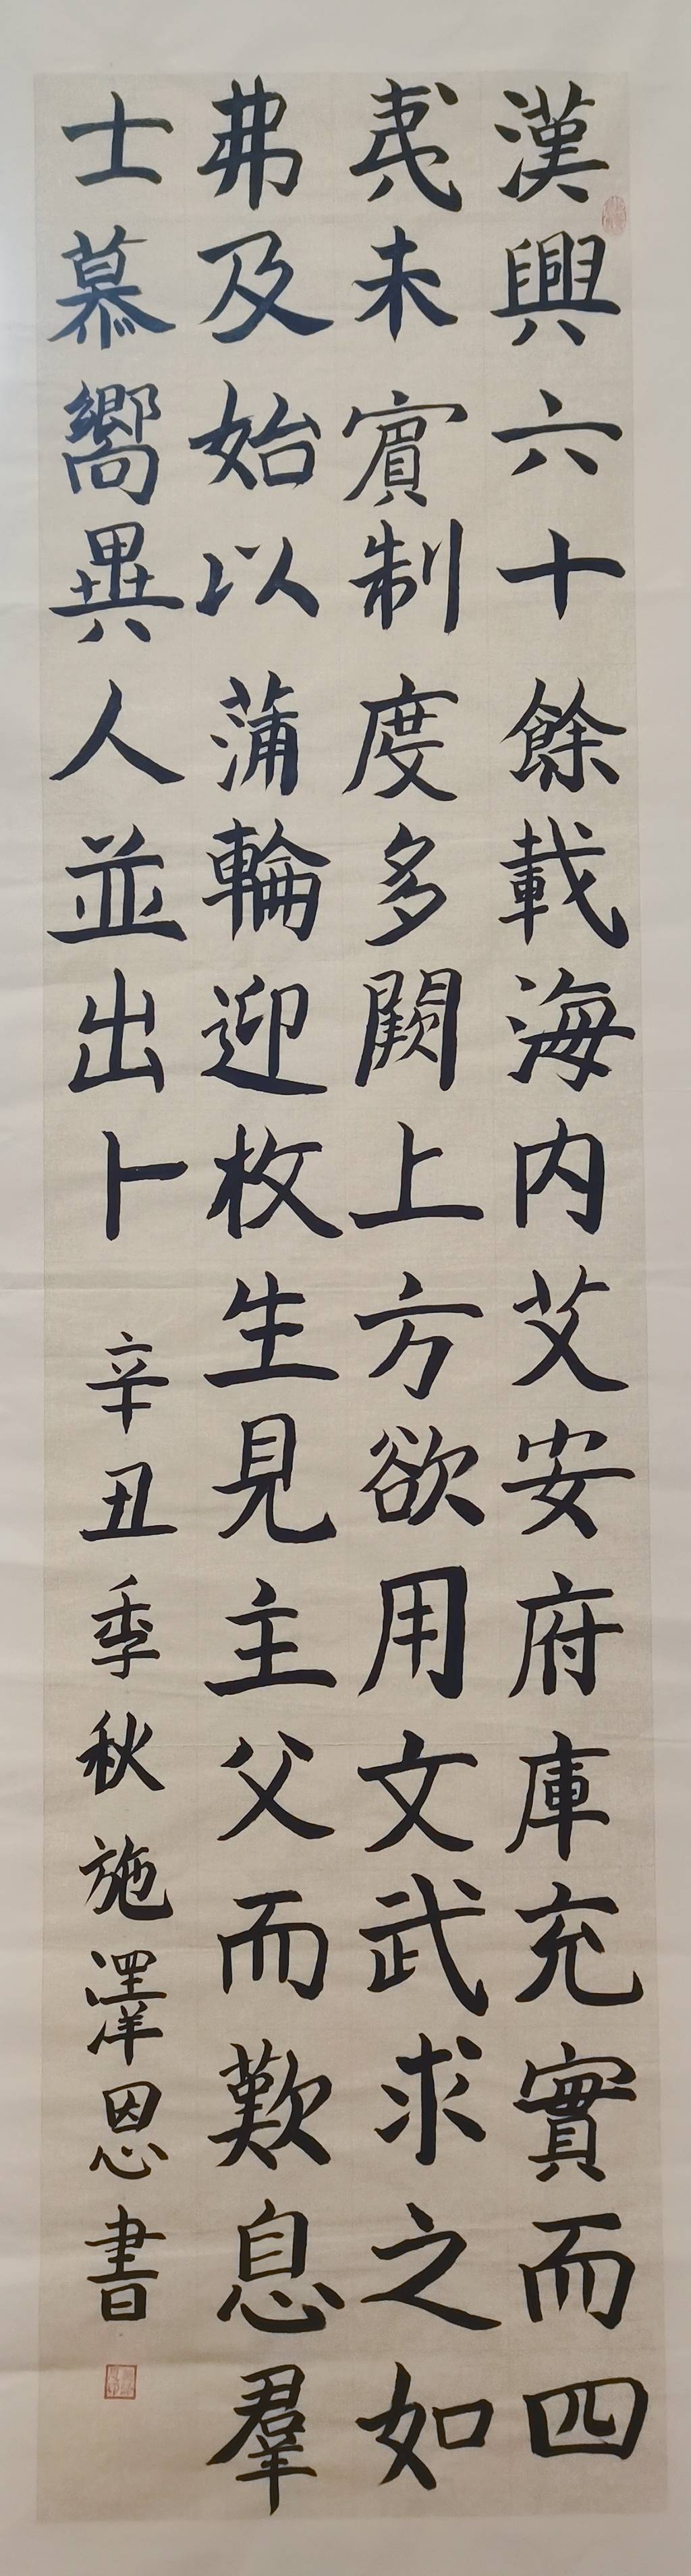 漢興六十餘載海内艾安府庫充實而四
夷未賓制度多闕上方欲用文武求之如
弗及始以蒲輪迎枚生見主父而歎息羣
士慕嚮異人並出卜
辛丑季秋施澤恩書